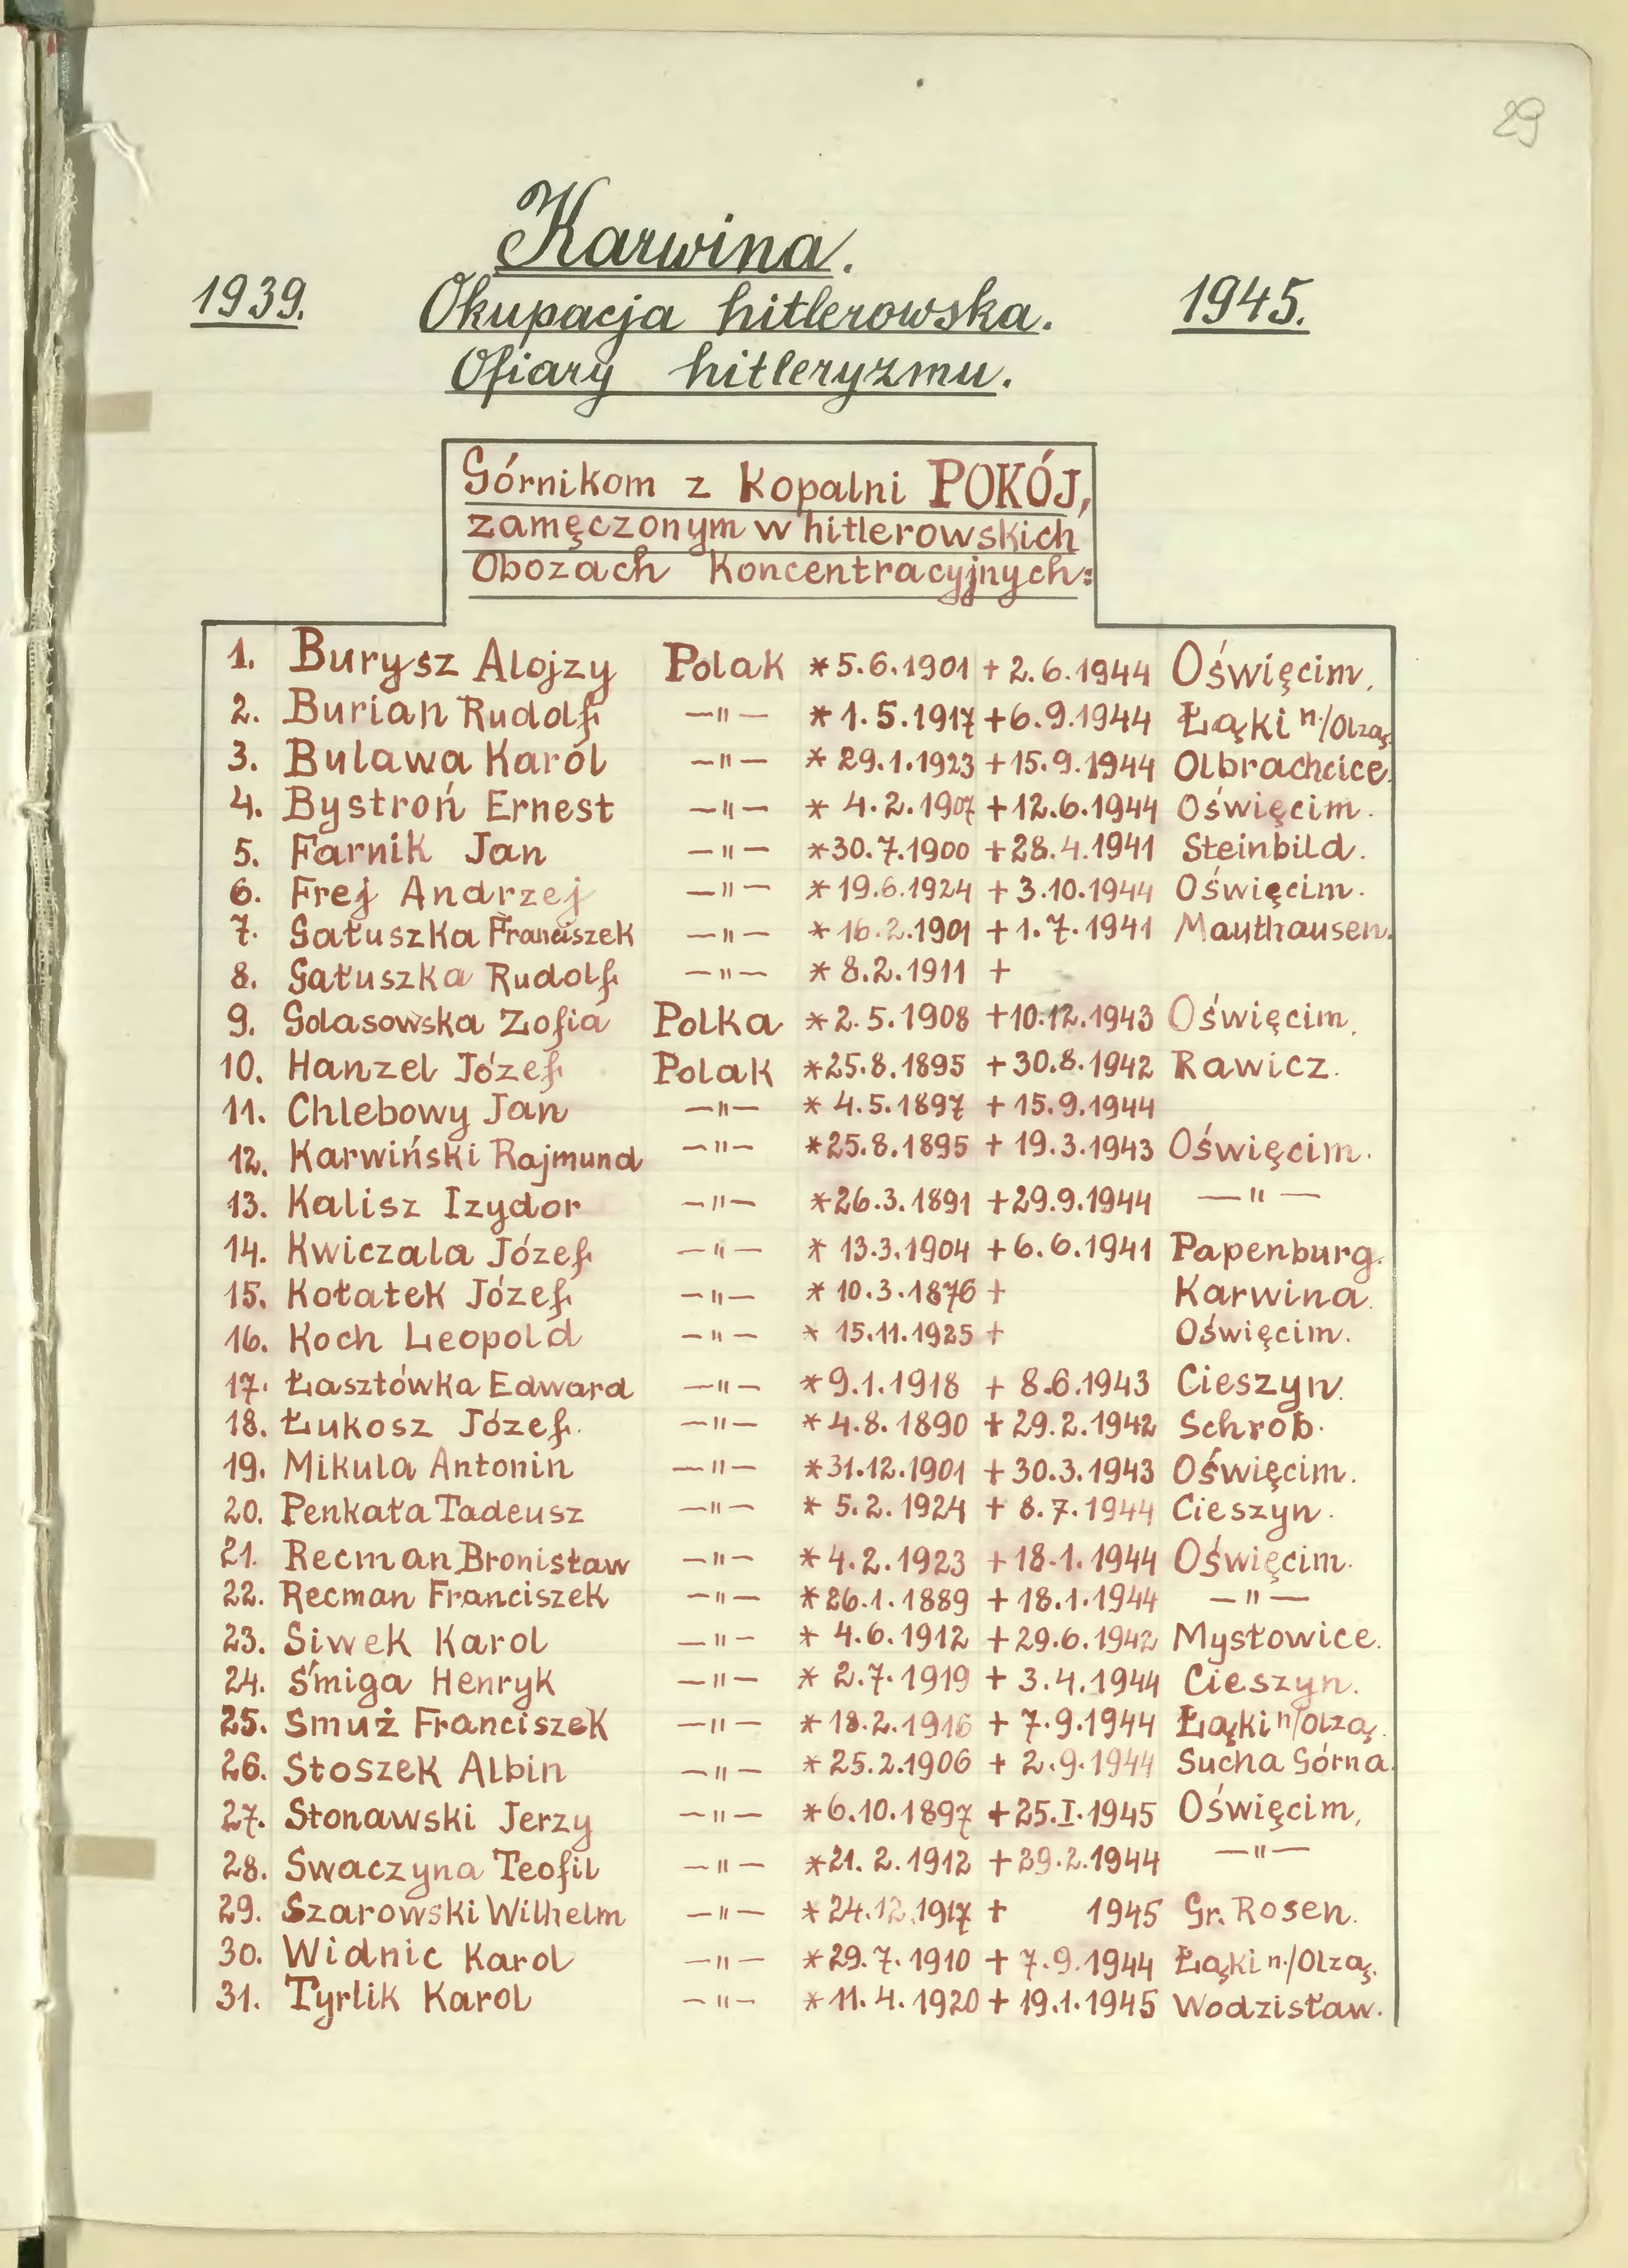 29
Karwina.
1939. Okupacja hitlerowska. 1945.
Ofiary hitleryzmu.
Górnikom z Kopalni POKÓJ,
zamęczonym w hitlerowskich
Obozach Koncentracyjnych:
1. Burysz Alojzy Polak *5.6.1901 + 2.6.1944 Oświęcim.
2. Burian Rudolf —"— *1.5.1917 +6.9.1944 Łąki n./Olzą.
3. Bulawa Karól —"— *29.1.1923 +15.9.1944 Olbrachcice.
4. Bystroń Ernest —"— *4.2.1907 +12.6.1944 Oświęcim.
5. Farnik Jan —"— *30.7.1900 +28.4.1941 Steinbild.
6. Frej Andrzej —"— *19.6.1924 + 3.10.1944 Oświęcim.
7. Gałuszka Franciszek —"— *16.2.1901 +1.7.1941 Mauthausen.
8. Gałuszka Rudolf —"— *8.2.1911 +
9. Golasowska Zofia Polka *2.5.1908 +10.12.1943 Oświęcim.
10. Hanzel Józef Polak *25.8.1895 +30.8.1942 Rawicz.
11. Chlebowy Jan —"— *4.5.1897 +15.9.1944
12. Karwiński Rajmund —"— *25.8.1895 + 19.3.1943 Oświęcim.
13. Kalisz Izydor —"— *26.3.1891 +29.9.1944 —"—
14. Kwiczala Józef —"— *13.3.1904 +6.6.1941 Papenburg.
15. Kołatek Józef —"— *10.3.1876 + Karwina.
16. Koch Leopold —"— *15.11.1925 + Oświęcim.
17. Łasztówka Edward —"— *9.1.1918 + 8.6.1943 Cieszyn.
18. Łukosz Józef. —"— *4.8.1890 +29.2.1942 Schrob.
19. Mikula Antonin —"— *31.12.1901 +30.3.1943 Oświęcim.
20. Penkała Tadeusz —"— *5.2.1924 + 8.7.1944 Cieszyn.
21. Recman Bronisław —"— *4.2.1923 +18.1.1944 Oświęcim.
22. Recman Franciszek —"— *26.1.1889 +18.1.1944 —"—
23. Siwek Karol —"— *4.6.1912 +29.6.1942 Mysłowice.
24. Śmiga Henryk —"— *2.7.1919 + 3.4.1944 Cieszyn.
25. Smuż Franciszek —"— *18.2.1916 + 7.9.1944 Łąki n/Olzą.
26. Stoszek Albin —"— *25.2.1906 + 2.9.1944 Sucha Górna.
27. Stonawski Jerzy —"— *6.10.1897 +25.I.1945 Oświęcim.
28. Swaczyna Teofil —"— *21.2.1912 +29.2.1944 —"—
29. Szarowski Wilhelm —"— *24.12.1917 + 1945 Gr. Rosen.
30. Widnic Karol —"— *29.7.1910 + 7.9.1944 Łąki n./Olzą.
31. Tyrlik Karol —"— *11.4.1920 + 19.1.1945 Wodzisław.